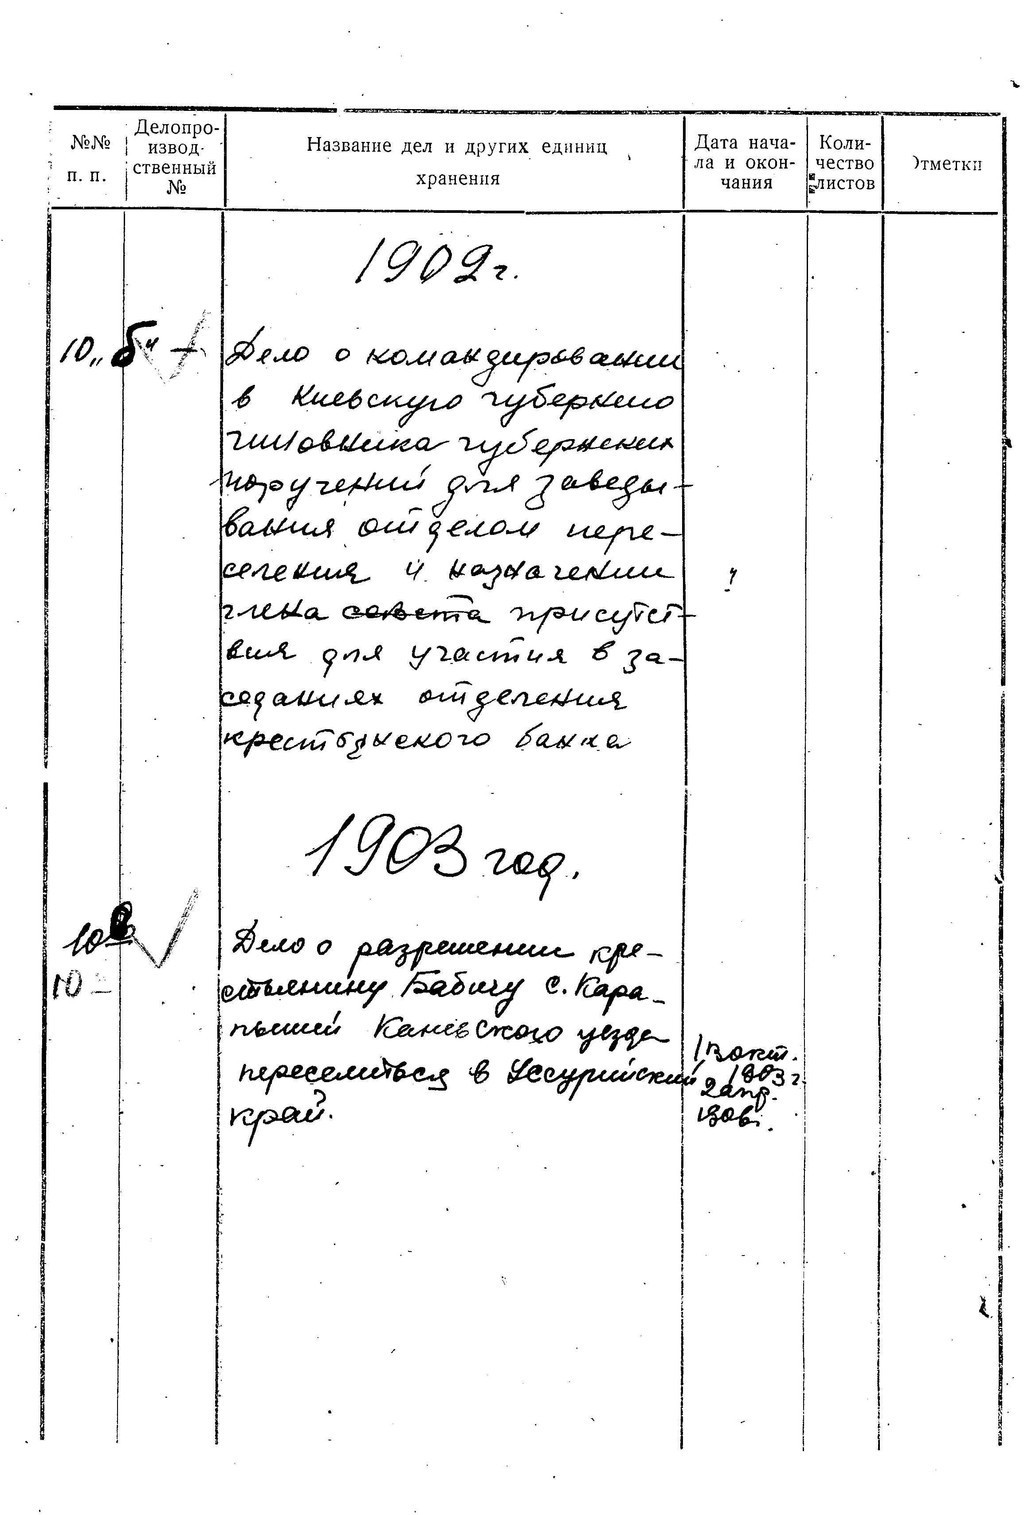 №№ п. п.
Делопро-
извод-
ственный
№
Название дел и других единиц
хранения
Дата нача-
ла и окон-
чания
Коли-
чество
листов
Отметки
1902 г.
10 „б“ – Дело о командировании
в Киевскую губернию
чиновника губернских
поручений для заведы-
вания отделом пере-
селения и назначении
члена совета присутст-
вия для участия в за-
седаниях отделения
крестьянского банка
1903 год.
10в
10
Дело о разрешении кре-
стьянину Бабичу с. Кара-
пышей Каневского уезда
переселиться в Уссурийский
край.
13 окт.
1903 г.
2 апр.